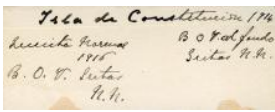 Isla de Constitución 1914
Lucecita Normas
1915
B. O. V. Sritas
N. N.
B O V al fondo
Sritas N. N.